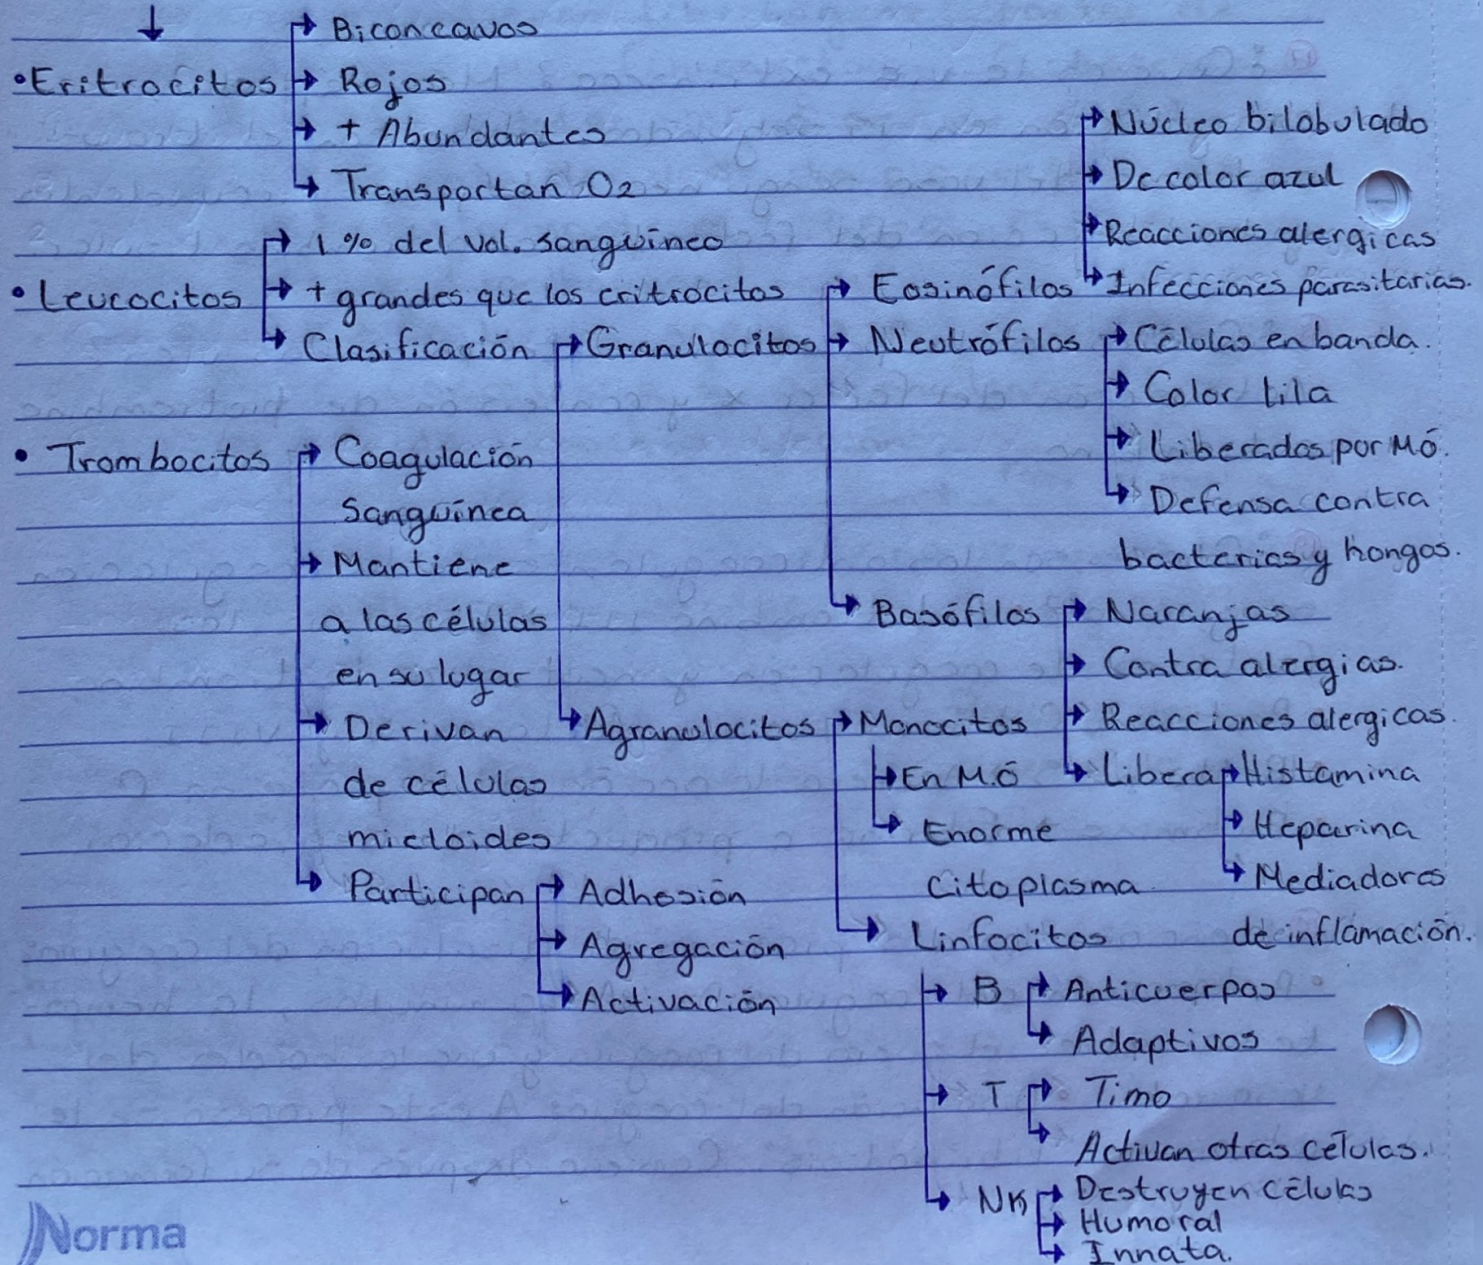 Biconcavos
• Eritrocitos
Rojos
+ Abundantes
Transportan O2
• Leucocitos
1 % del vol. sanguíneo
+ grandes que los eritrocitos
Clasificación
Granulocitos
Eosinófilos
Núcleo bilobulado
De color azul
Reacciones alergicas
Infecciones parasitarias.
Neutrófilos
Células en banda.
Color lila
Liberados por MÓ.
Defensa contra
bacterias y hongos.
Basófilos
Naranjas
Contra alergias.
Reacciones alergicas.
Libera
Histamina
Heparina
Mediadores
de inflamación.
Agranulocitos
Monocitos
En M.Ó
Enorme
citoplasma
Linfocitos
B
Anticuerpos
Adaptivos
T
Timo
Activan otras células.
NK
Destruyen células
Humoral
Innata.
• Trombocitos
Coagulación
Sanguínea
Mantiene
a las células
en su lugar
Derivan
de células
mieloides
Participan
Adhesión
Agregación
Activación
Norma